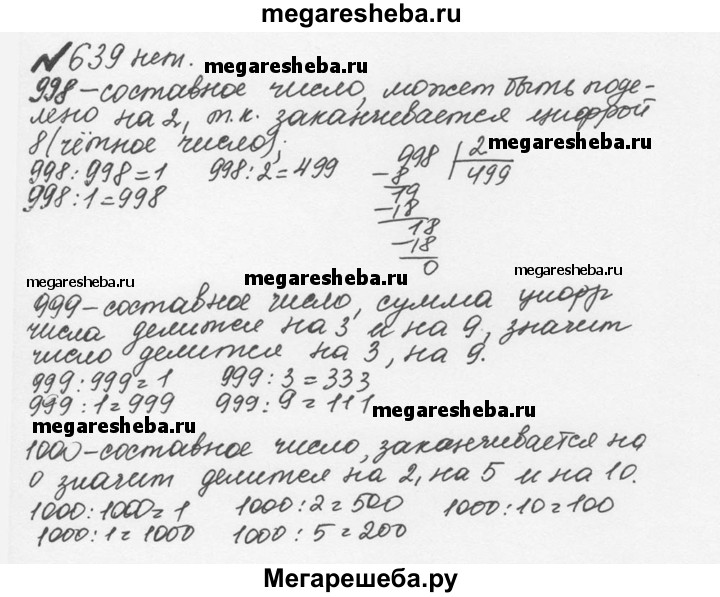 megaresheba.ru
№ 639 нет.
megaresheba.ru
998 – составное число, может быть поде-
лено на 2, т.к. заканчивается цифрой
8 (чётное число);
megaresheba.ru
998 : 998 = 1 998 : 2 = 499
998 : 1 = 998
998 | 2
–8 499
19
–18
18
–18
0
megaresheba.ru megaresheba.ru megaresheba.ru
999 – составное число, сумма цифр
числа делится на 3 и на 9, значит
число делится на 3, на 9.
999 : 999 = 1 999 : 3 = 333
999 : 1 = 999 999 : 9 = 111
megaresheba.ru
megaresheba.ru
1000 – составное число, заканчивается на
0 значит делится на 2, на 5 и на 10.
1000 : 1000 = 1 1000 : 2 = 500 1000 : 10 = 100
1000 : 1 = 1000 1000 : 5 = 200
Мегарешеба.ру